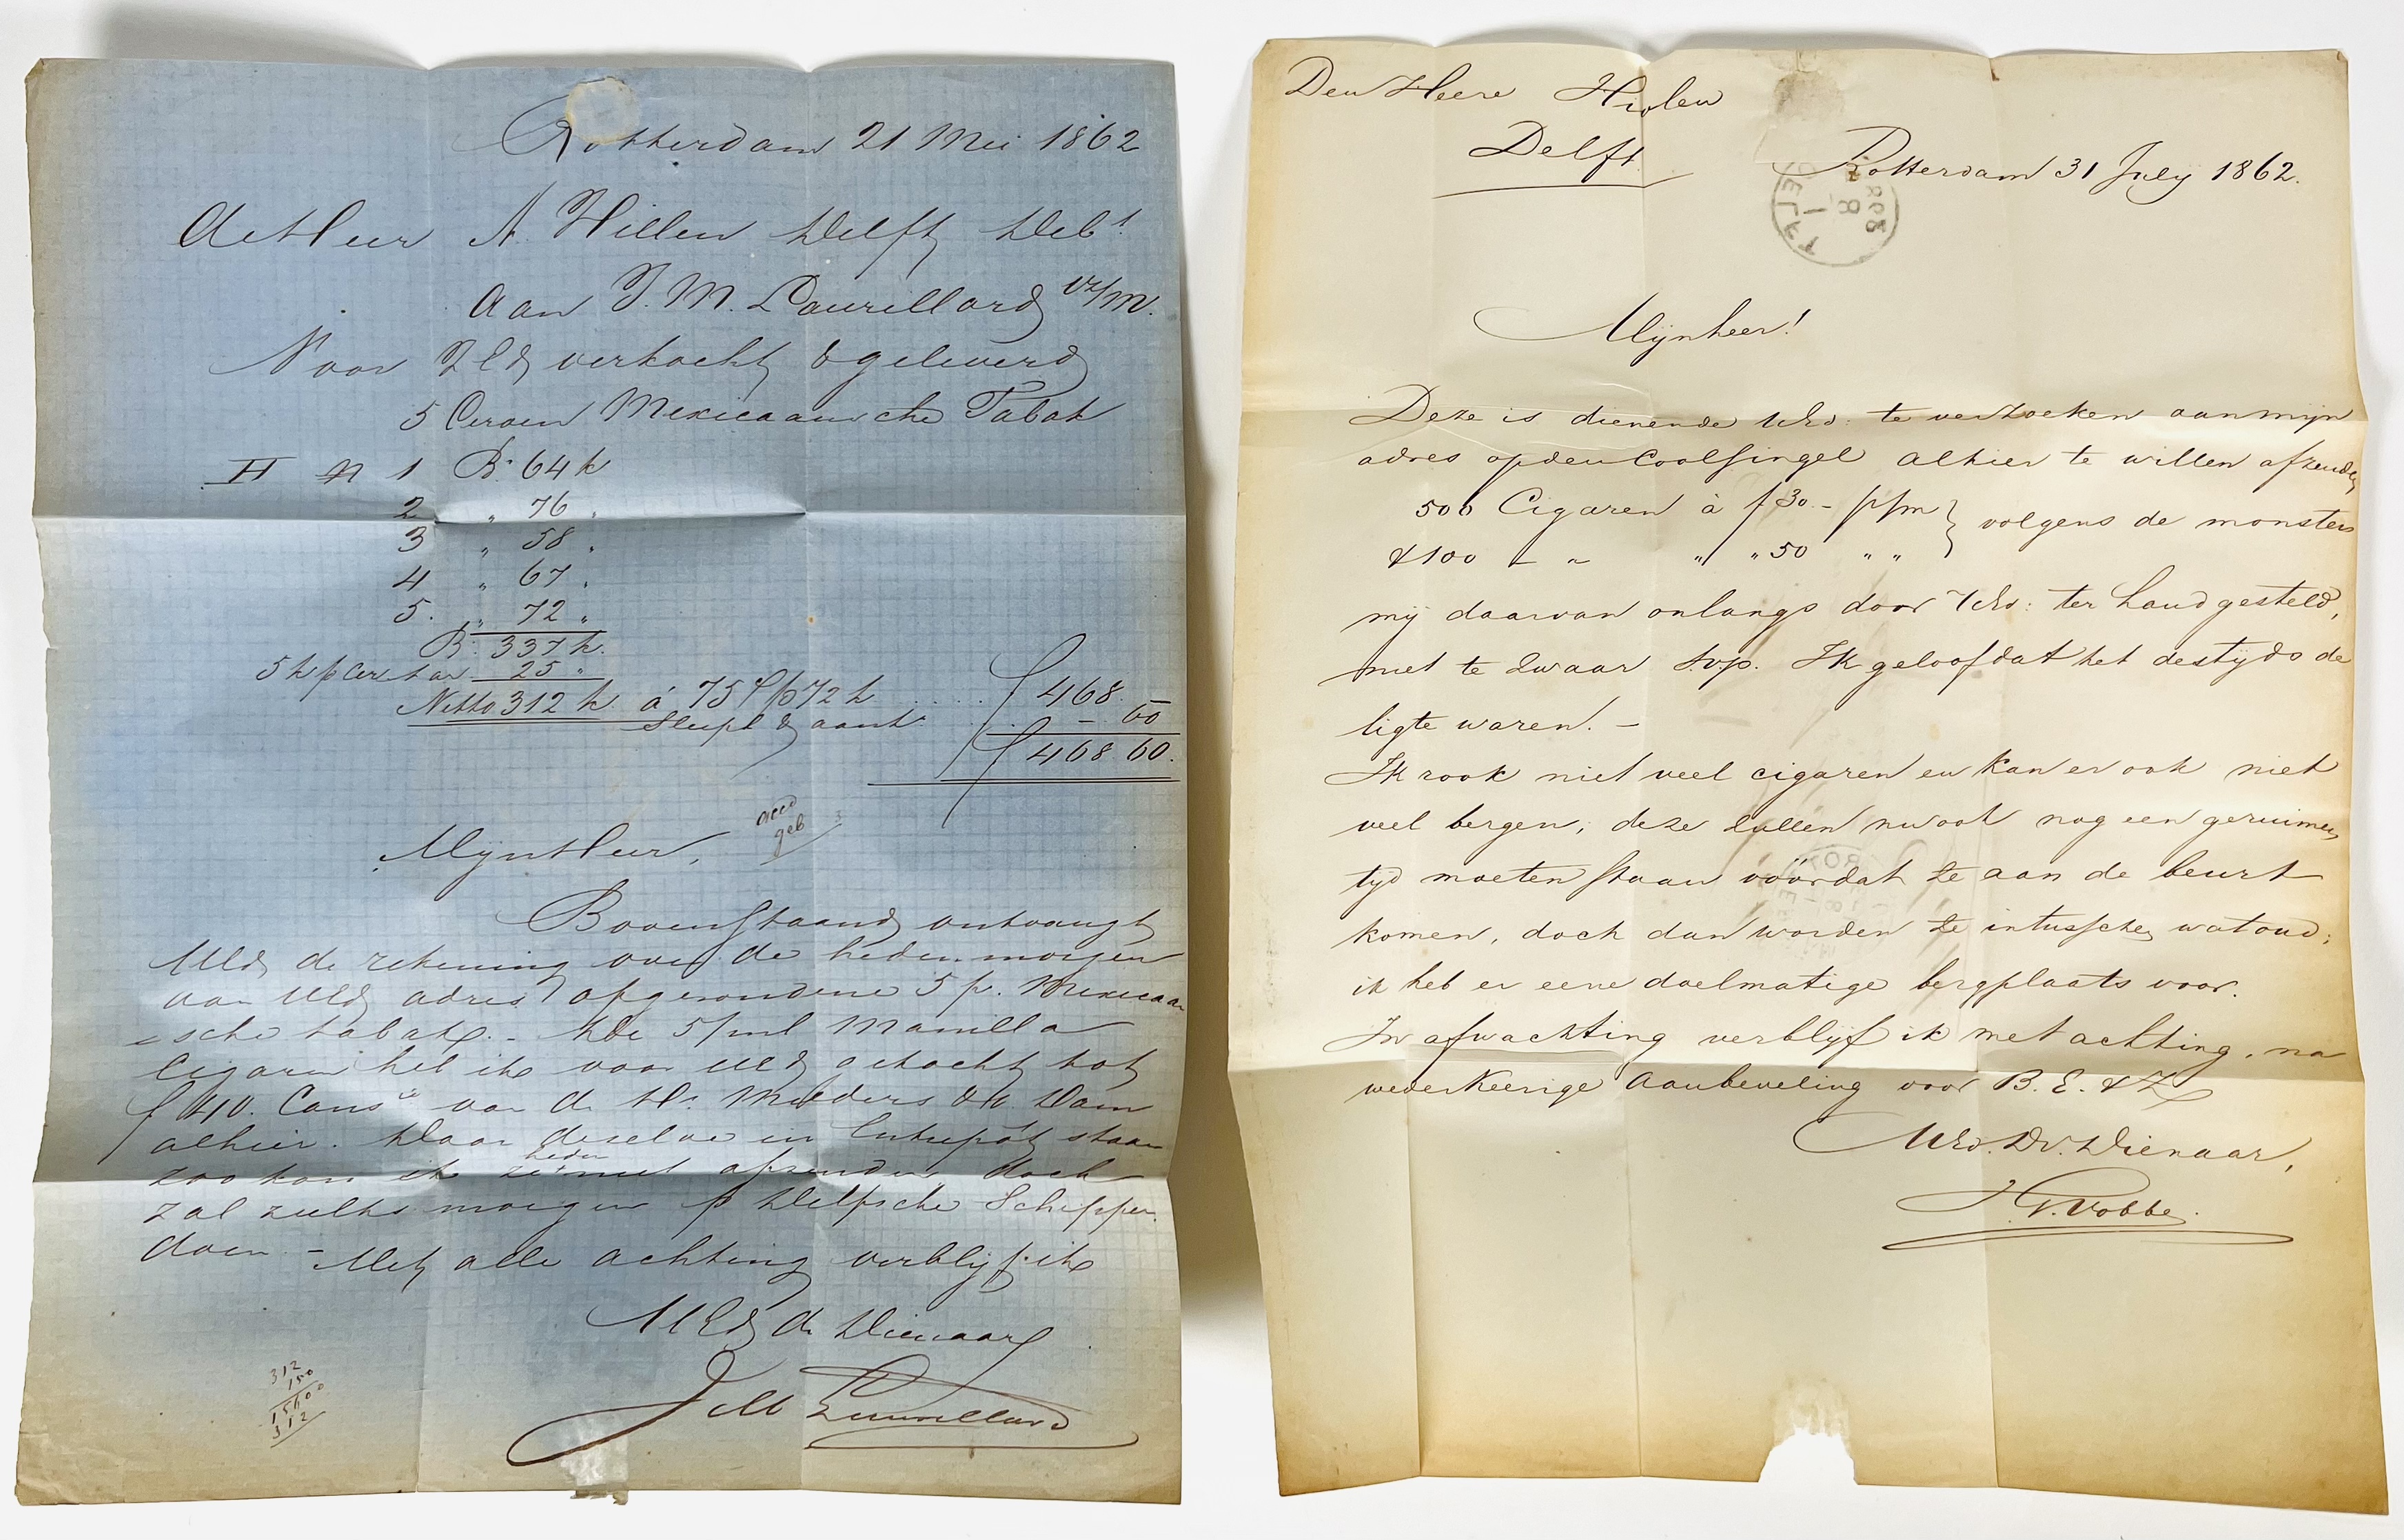 Rotterdam 21 Mei 1862
de Heer A. Hillen Delft Debt
Aan J. M. Laurillard
Voor UEd verkocht & geleverd
5 Ceroen Mexicaansche Tabak
H N 1 B: 64 k
2 " 76 "
3 " 58 "
4 " 67 "
5. " 72 "
B: 337 k.
5 k p Cer tar 25 "
Netto 312 k á 75 c/p 1/2 k ..... f 468.
Sleepl & aant: ..... - 60
f 468 60.
accd
geb
Mijn Heer,
Bovenstaand ontvangt
UEd de rekening over de heden morgen
aan UEd adres afgezondene 5 p. Mexicaan
=sche tabak. - De 5/ml Manilla
Cigaren heb ik voor UEd gekocht tot
f 40. Cons van de Hr. Mulders & v. Dam
alhier. Daar dezelve in Entrepôt staan
heden
zoo kan ik ze niet afzenden doch
zal zulks morgen p Delfsche Schipper
doen. - Met alle achting verblijf ik
UEd Dr Dienaar
J M Laurillard
312
150
15600
312
Den Heere Hielen
Delft
Rotterdam 31 July 1862.
DELFT
1
8
Mijnheer!
Deze is dienende UEd: te verzoeken aan mijn
adres op den Coolsingel alhier te willen afzenden
500 Cigaren à f 30.- p/m } volgens de monsters
& 100 - " " " 50 " "
mij daarvan onlangs door UEd: ter hand gesteld,
niet te zwaar s.v.p. Ik geloof dat het destijds de
ligte waren. -
Ik rook niet veel cigaren en kan er ook niet
veel bergen; deze zullen nu ook nog een geruimen
tijd moeten staan vóórdat ze aan de beurt
komen, doch dan worden ze intusschen wat oud;
ik heb er eene doelmatige bergplaats voor.
In afwachting verblijf ik met achting, na
wederkeerige aanbeveling voor B. E. & Z
UEd. Dv. Dienaar,
J. G. Robbe.